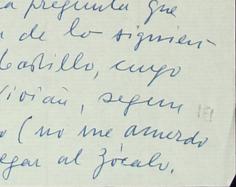 a pregunta que
de lo siguien-
Castillo, cuyo
Vivian, segun
o (no me acuerdo
egar al Zócalo.